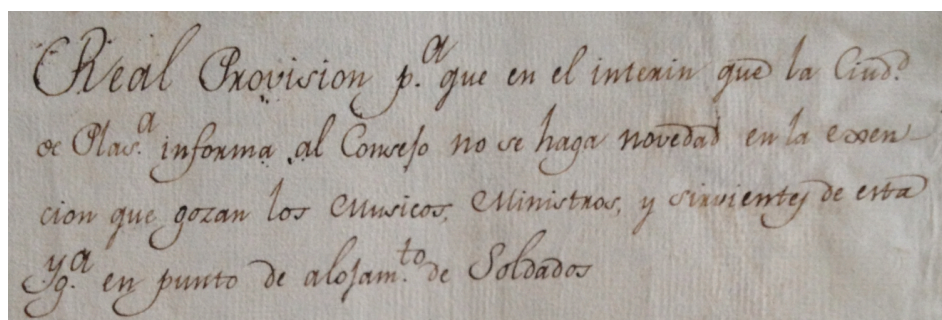 Real Provision p.a que en el interin que la Ciud.d
de Plas.a informa al Consejo no se haga novedad en la exen-
cion que gozan los Musicos, Ministros, y sirvientes de esta
Yg.a en punto de alojam.to de Soldados